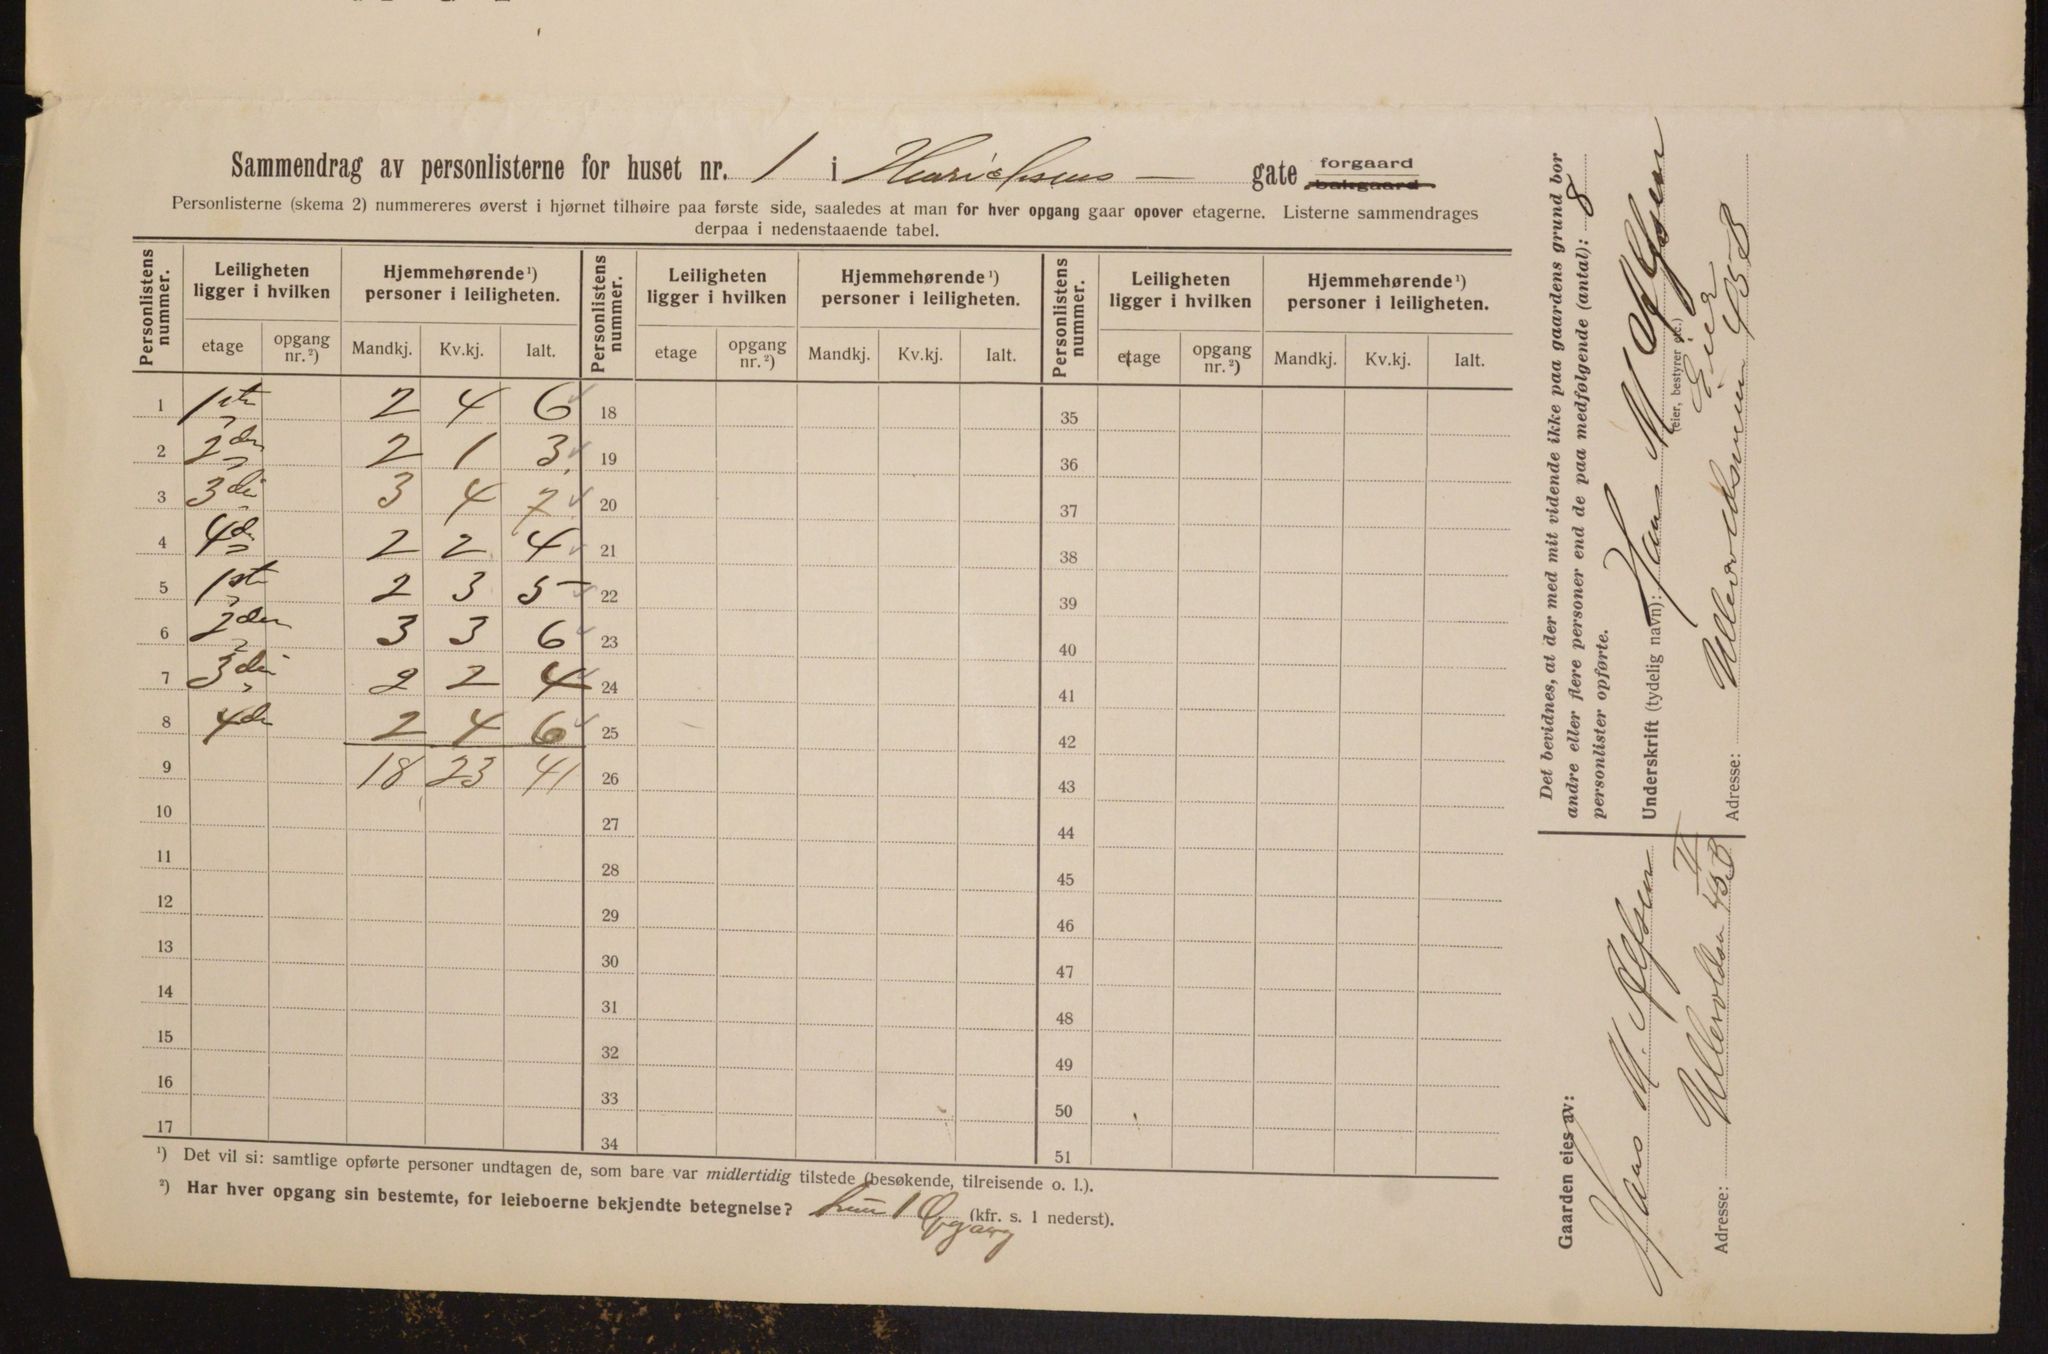 Sammendrag av personlisterne for huset nr. 1 i Henrichsens — gate forgaard bakgaard
Personlisterne (skema 2) nummereres øverst i hjørnet tilhøire paa første side, saaledes at man for hver opgang gaar opover etagerne. Listerne sammendrages
derpaa i nedenstaaende tabel.
Personlistens nummer. Leiligheten ligger i hvilken Hjemmehørende¹) personer i leiligheten. Personlistens nummer. Leiligheten ligger i hvilken Hjemmehørende¹) personer i leiligheten. Personlistens nummer. Leiligheten ligger i hvilken Hjemmehørende¹) personer i leiligheten.
etage opgang nr.²) Mandkj. Kv.kj. Ialt. etage opgang nr.²) Mandkj. Kv.kj. Ialt. etage opgang nr.²) Mandkj. Kv.kj. Ialt.
1 1ste 2 4 6 18 35
2 2den 2 1 3 19 36
3 3die 3 4 7 20 37
4 4de 2 2 4 21 38
5 1ste 2 3 5 22 39
6 2den 3 3 6 23 40
7 3die 2 2 4 24 41
8 4de 2 4 6 25 42
9 18 23 41 26 43
10 27 44
11 28 45
12 29 46
13 30 47
14 31 48
15 32 49
16 33 50
17 34 51
¹) Det vil si: samtlige opførte personer undtagen de, som bare var midlertidig tilstede (besøkende, tilreisende o. l.).
²) Har hver opgang sin bestemte, for leieboerne bekjendte betegnelse? kun 1 Opgang (kfr. s. 1 nederst).
Det bevidnes, at der med mit vidende ikke paa gaardens grund bor
andre eller flere personer end de paa medfølgende (antal): 8
personlister opførte.
Underskrift (tydelig navn): Hans M
(eier, bestyrer etc.)
Eier
Adresse: Ullevoldsveien
Gaarden eies av:
Hans M.
Adresse: Ullevoldsv